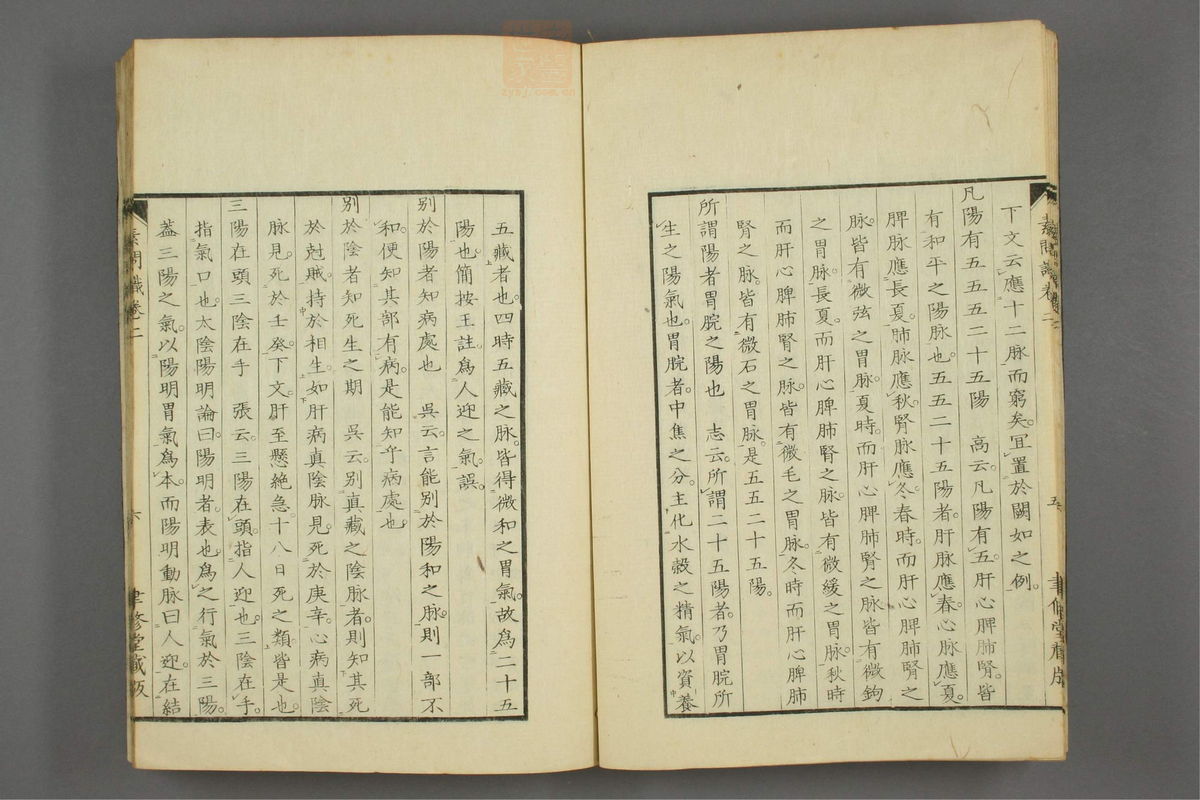 下文云應十二脉而窮矣宜置於闕如之例
凡陽有五五五二十五陽　高云凡陽有五肝心脾肺腎皆
有和平之陽脉也五五二十五陽者肝脉應春心脉應夏
脾脉應長夏肺脉應秋腎脉應冬春時而肝心脾肺腎之
脉皆有微弦之胃脉夏時而肝心脾肺腎之脉皆有微鉤
之胃脉長夏而肝心脾肺腎之脉皆有微緩之胃脉秋時
而肝心脾肺腎之脉皆有微毛之胃脉冬時而肝心脾肺
腎之脉皆有微石之胃脉是五五二十五陽
所謂陽者胃脘之陽也　志云所謂二十五陽者乃胃脘所
生之陽氣也胃脘者中焦之分主化水穀之精氣以資養
素問識卷二
五
聿修堂藏版
五藏者也四時五藏之脉皆得微和之胃氣故爲二十五
陽也簡按王註爲人迎之氣誤
別於陽者知病處也　吳云言能別於陽和之脉則一部不
和便知其部有病是能知乎病處也
別於陰者知死生之期　吳云別真藏之陰脉者則知其死
於尅賊持於相生如肝病真陰脉見死於庚辛心病真陰
脉見死於壬癸下文肝至懸絶急十八日死之類皆是也
三陽在頭三陰在手　張云三陽在頭指人迎也三陰在手
指氣口也太陰陽明論曰陽明者表也爲之行氣於三陽
蓋三陽之氣以陽明胃氣爲本而陽明動脉曰人迎在結
素問識卷二
六
聿修堂藏版
zysj.com.cn